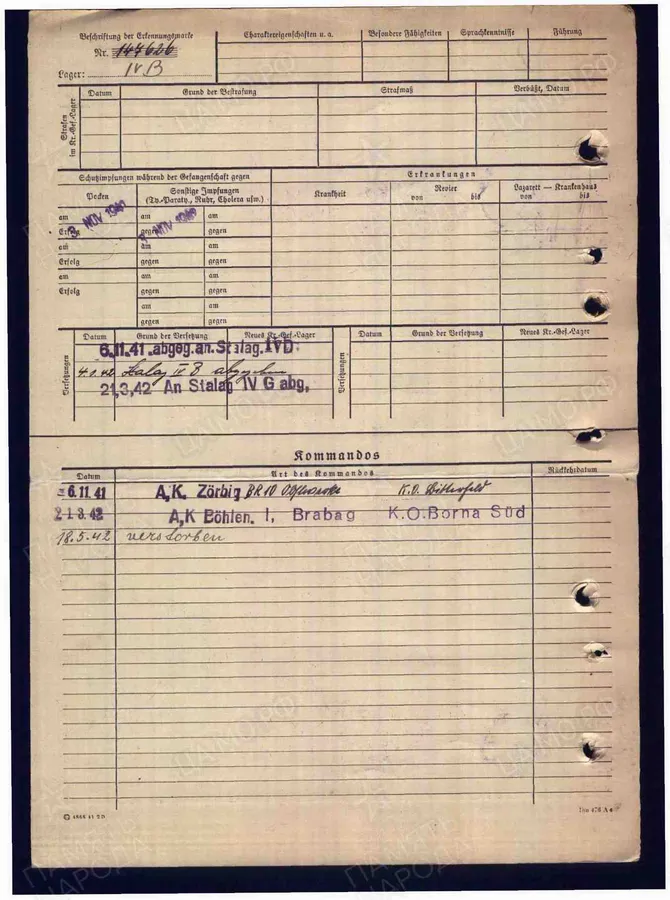 Beschriftung der Erkennungsmarke
Nr. 147626
Lager: IV B
Charaktereigenschaften u. a.
Besondere Fähigkeiten
Sprachkenntnisse
Führung
Strafen im Kr.-Gef.-Lager
Datum
Grund der Bestrafung
Strafmaß
Verbüßt, Datum
Schutzimpfungen während der Gefangenschaft gegen
Erkrankungen
Pocken
Sonstige Impfungen
(Ty.-Paraty., Ruhr, Cholera usw.)
Krankheit
Revier
von bis
Lazarett — Krankenhaus
von bis
am am am
3 NOV 1941 NOV 1941
Erfolg gegen gegen
am am am
Erfolg gegen gegen
am am am
Erfolg gegen gegen
am am
gegen gegen
Versetzungen
Datum Grund der Versetzung Neues Kr.-Gef.-Lager
6.11.41 abgeg. an. Stalag. IVD.
4.1.42 Stalag IV B abgegeben
21.3.42 An Stalag IV G abg.
Versetzungen
Datum Grund der Versetzung Neues Kr.-Gef.-Lager
Kommandos
Datum Art des Kommandos Rückkehrdatum
6.11.41 A,K. Zörbig K.O. Bitterfeld
21.3.42 A,K Böhlen. I, Brabag K.O. Borna Süd
18.5.42 verstorben
4866 41 2D
Din 476 A 4
ЦАМО.РФ
ПАМЯТЬ
НАРОДА